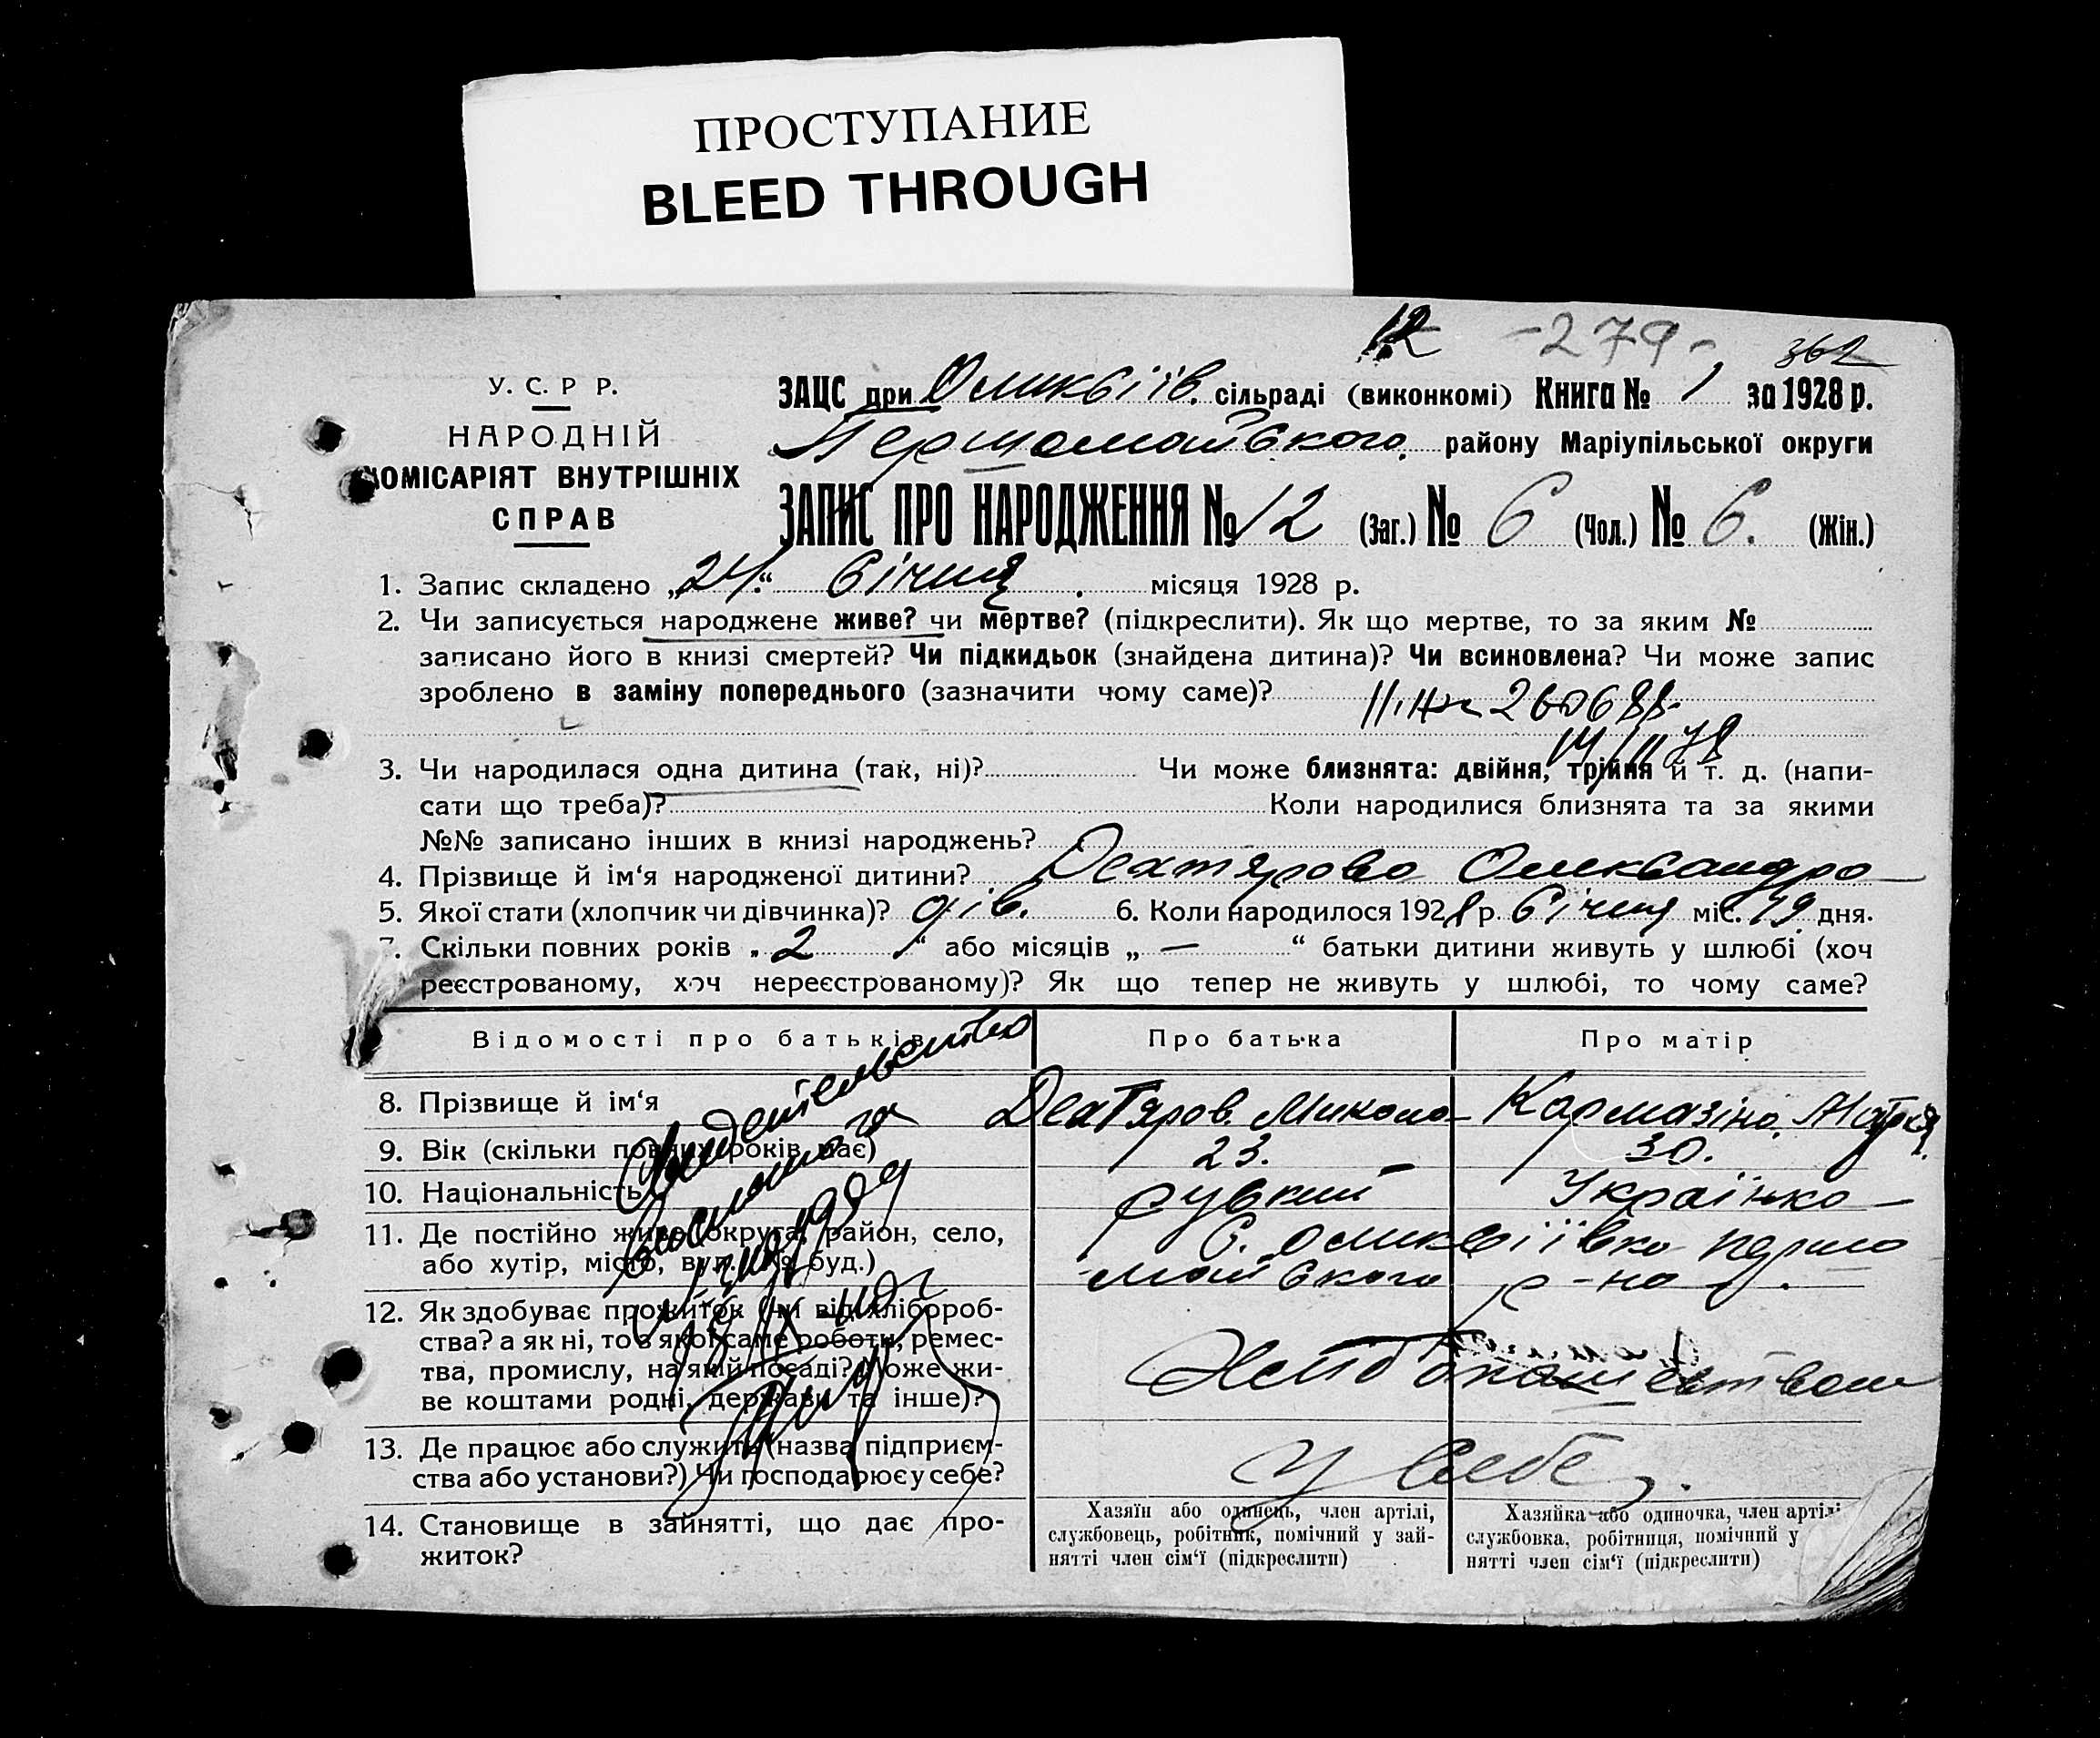 ПРОСТУПАНИЕ
BLEED THROUGH
12 -279- 362
У. С. Р Р.
НАРОДНІЙ
КОМІСАРІЯТ ВНУТРІШНІХ
СПРАВ
ЗАЦС при Оликсіїв. сільраді (виконкомі) Книга № 1 за 1928 р.
Першомайського району Маріупільської округи
ЗАПИС ПРО НАРОДЖЕННЯ № 12 (Заг.) № 6 (Чол.) № 6. (Жін.)
1. Запис складено „24.“ Січня місяця 1928 р.
2. Чи записується народжене живе? чи мертве? (підкреслити). Як що мертве, то за яким №
записано його в книзі смертей? Чи підкидьок (знайдена дитина)? Чи всиновлена? Чи може запис
зроблено в заміну попереднього (зазначити чому саме)?
3. Чи народилася одна дитина (так, ні)? Чи може близнята: двійня, трійня й т. д. (напи-
сати що треба)? Коли народилися близнята та за якими
№№ записано інших в книзі народжень?
4. Прізвище й ім‘я народженої дитини? Дехтярова Олександра
5. Якої стати (хлопчик чи дівчинка)? дів. 6. Коли народилося 1928 р. Січня міс. 19 дня.
7. Скільки повних років „2“ або місяців „—“ батьки дитини живуть у шлюбі (хоч
реєстрованому, хоч нереєстрованому)? Як що тепер не живуть у шлюбі, то чому саме?
Відомості про батьків Про батька Про матір
8. Прізвище й ім‘я Дехтяров. Микола Кармазіна,
9. Вік (скільки повних років має) 23. 30.
10. Національність руский Українка
11. Де постійно живе (округа, район, село, С. Оликсіївка першо
або хутір, місто, вул. і № буд.) -майского р-на
12. Як здобуває прожиток (чи від хлібороб-
ства? а як ні, то з якої саме роботи, ремес-
тва, промислу, на якій посаді? Може жи-
ве коштами родні, держави та інше)?
13. Де працює або служить (назва підприєм-
ства або установи?) Чи господарює у себе? У себе
14. Становище в зайнятті, що дає про-
житок?
Хазяїн або одинець, член артілі,
службовець, робітник, помічний у зай-
нятті член сім‘ї (підкреслити)
Хазяйка або одиночка, член артілі
службовка, робітниця, помічний у
нятті член сім‘ї (підкреслити)